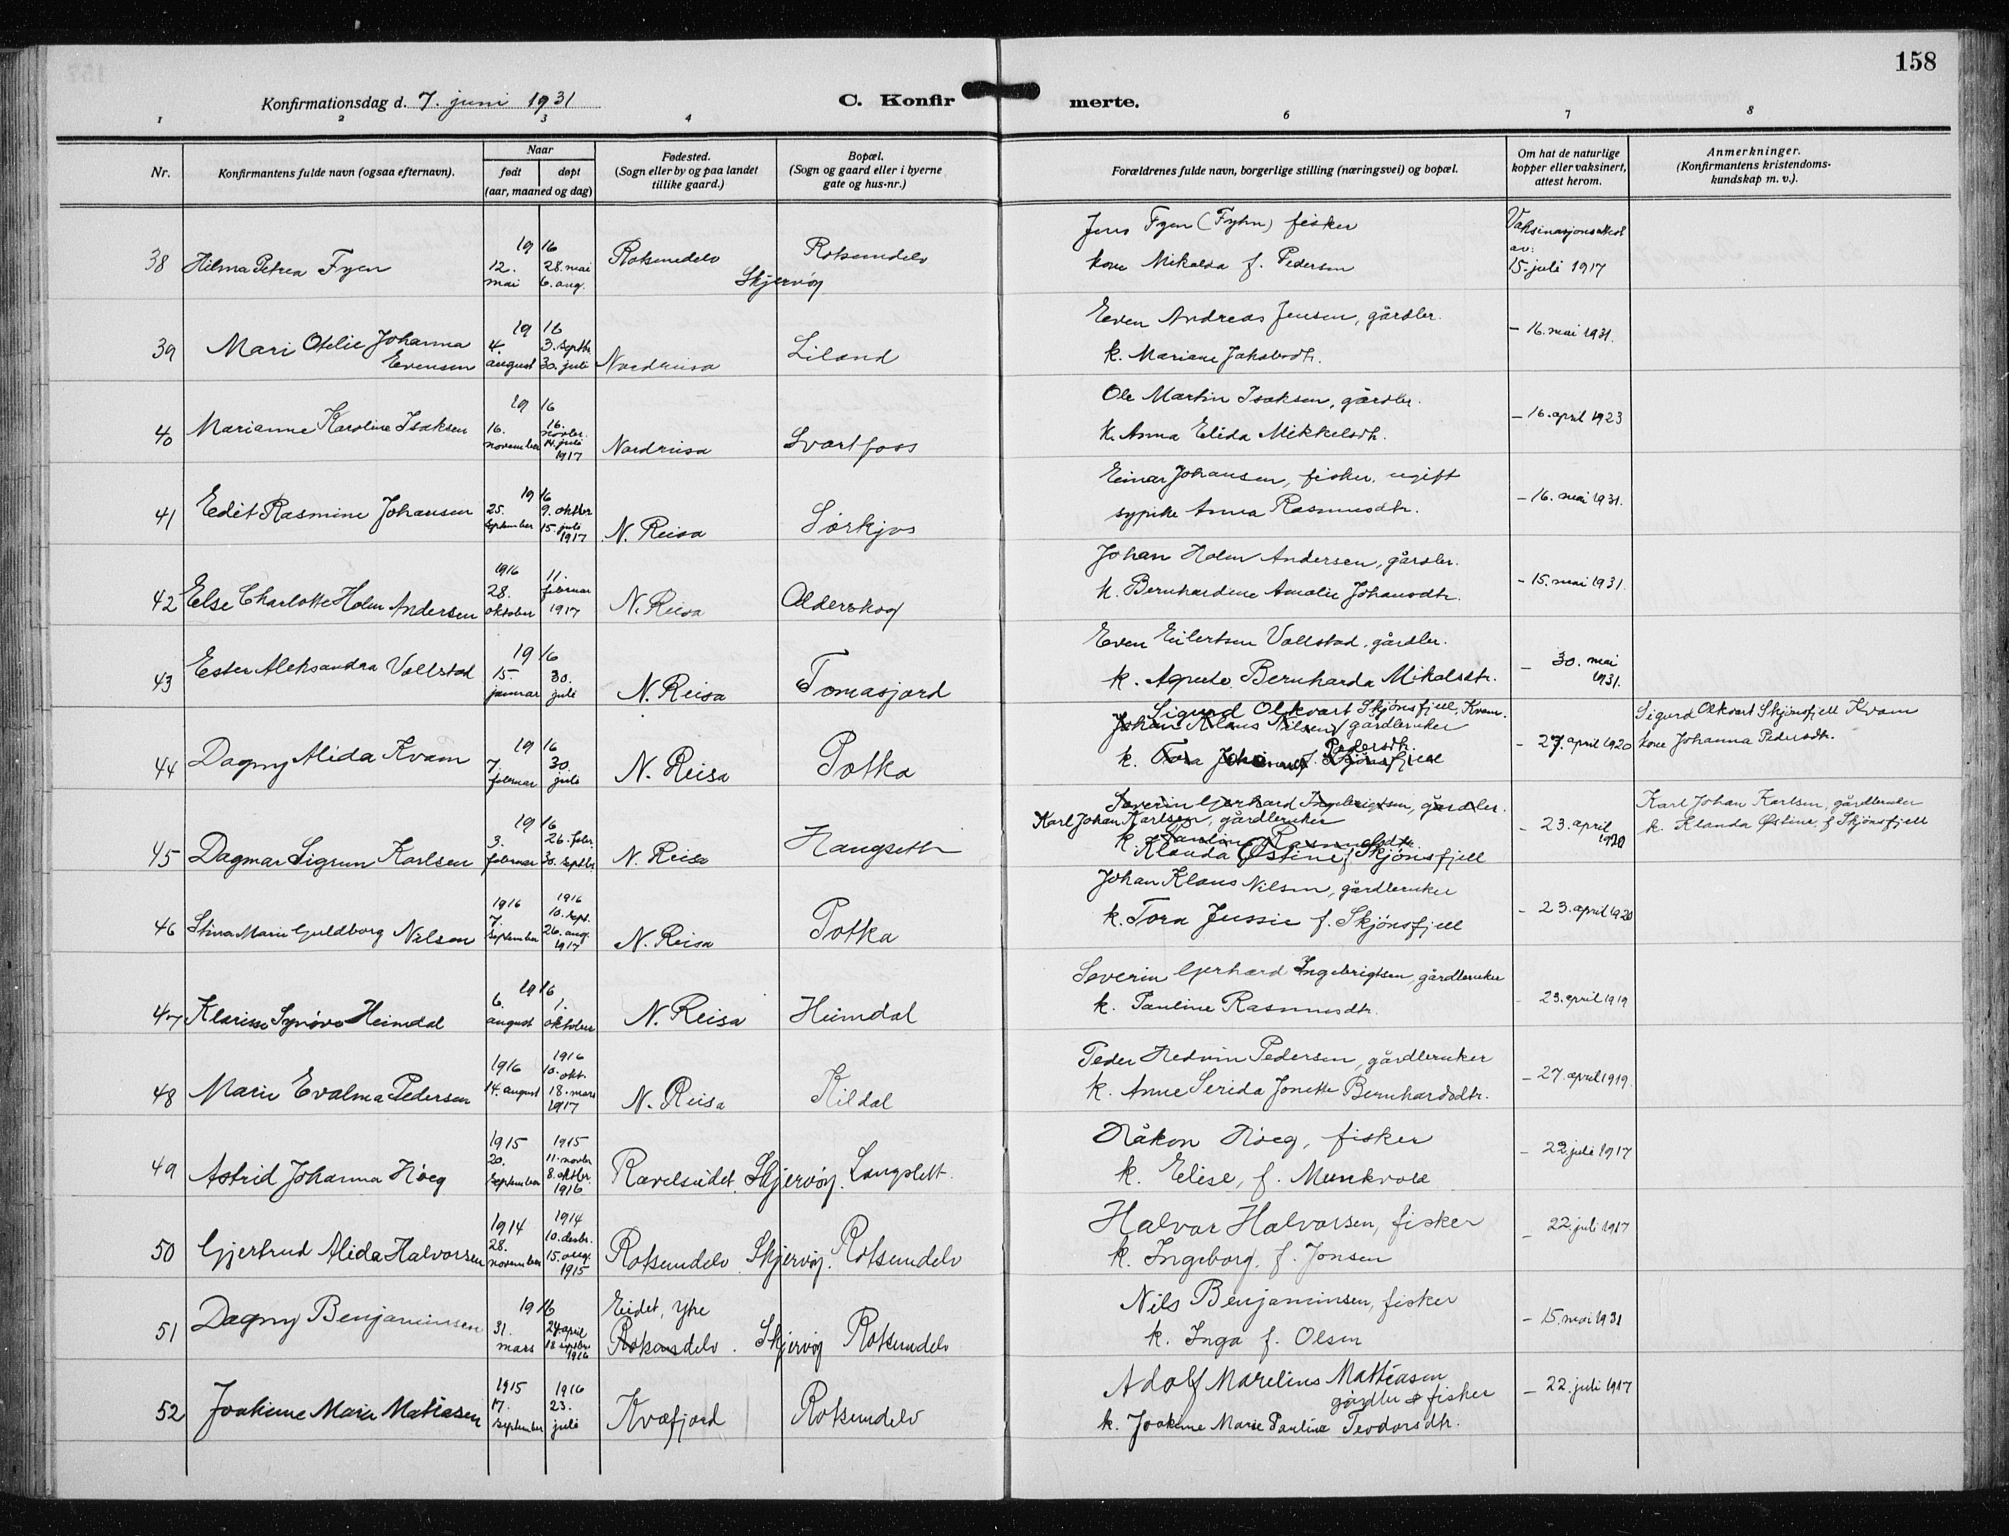 158
Konfirmationsdag d. 7. juni 1931
C. Konfirmerte.
1 2 3 4 6 7 8
Nr.
Konfirmantens fulde navn (ogsaa efternavn).
Naar
født
døpt
(aar, maaned og dag)
Fødested.
(Sogn eller by og paa landet
tillike gaard.)
Bopæl.
(Sogn og gaard eller i byerne
gate og hus-nr.)
Forældrenes fulde navn, borgerlige stilling (næringsvei) og bopæl.
Om hat de naturlige
kopper eller vaksinert,
attest herom.
Anmerkninger.
(Konfirmantens kristendoms-
kundskap m. v.).
38 Hilma Petrea Fyen 1916 12. mai 28. mai 6. aug. Rotsundelv Skjervøy Rotsundelv
Jens Fyen (Fyhn) fisker
kone Mikalda f. Pedersen
Vaksinasjonsattest
av:
15. juli 1917
39 Mari Otelie Johanna
Evensen 1916 4. august 3. septbr. 30. juli Nordreisa Liland
Even Andreas Jensen, gårdbr.
k. Mariane Jakobsdtr.
– 16. mai 1931.
40 Marianne Karoline Isaksen 1916 16. november 16. novbr. 14. juli 1917 Nordreisa Svartfoss
Ole Martin Isaksen, gårdbr.
k. Anna Elida Mikkelsdtr.
– 16. april 1923
41 Edit Rasmine Johansen 1916 25. september 9. oktbr 15. juli 1917 N. Reisa Sørkjos
Einar Johansen, fisker, ugift
sypike Anna Rasmusdtr.
– 16. mai 1931.
42 Else Charlotte Holm Andersen 1916 28. oktober 11. februar 1917 N. Reisa Olderskog
Johan Holm Andersen, gårdbr.
k. Bernhardine Amalie Johansdtr.
– 15. mai 1931.
43 Ester Aleksandra Vallstad 1916 15. januar 30. juli N. Reisa Tomasjord
Even Eilertsen Vallstad, gårdbr.
k. Agnete Bernharda Mikalsdtr.
– 30. mai
1931.
44 Dagny Alida Kvam 1916 7. februar 30. juli N. Reisa Potka
Sigurd Olkvart Skjønsfjell Kvam.
Johan Klaus Nilsen, gårdbruker
Pedersdtr.
k. Tora Johanna f. Skjønsfjell
– 27. april 1920
Sigurd Olkvart Skjønsfjell Kvam
kone Johanna Pedersdtr.
45 Dagmar Sigrun Karlsen 1916 3. februar 26. febr. 30. septbr. N. Reisa Haugseth
Severin Gerhard Ingebrigtsen, gårdbr.
Karl Johan Karlsen, gårdbruker
k. Pauline Rasmusdtr.
Klanda Østine f. Skjønsfjell
– 23. april
1920
Karl Johan Karlsen, gårdbruker
k. Klanda Østine, f. Skjønsfjell
46 Stina Marie Guldborg Nilsen 1916 7. september 1916 10. sept. 26. aug. 1917 N. Reisa Potka
Johan Klaus Nilsen, gårdbruker
k. Tora Jussie f. Skjønsfjell
– 23. april 1920
47 Klarisse Synøve Heimdal 1916 6. august 1. oktober N. Reisa Heimdal
Severin Gerhard Ingebrigtsen, gårdbruker
k. Pauline Rasmusdtr.
– 23. april 1919
48 Marie Evalma Pedersen 1916 14. august 1916 10. okt. 18. mars 1917 N. Reisa Kildal
Peder Hedvin Pedersen, gårdbruker
k. Anne Serida Jonette Bernhardsdtr.
– 27. april 1919.
49 Astrid Johanna Høeg 1915 20. september 1915 11. novbr 8. oktbr. 1916 Ravelseidet. Skjervøy. Langslett.
Håkon Høeg, fisker
k. Elise, f. Munkvold
– 22 juli 1917
50 Gjertrud Alida Halvorsen 1914 28. november 1914 10. desbr. 15. aug. 1915 Rotsundelv. Skjervøy. Rotsundelv
Halvor Halvorsen, fisker
k. Ingeborg. f. Jonsen
– 22 juli 1917
51 Dagny Benjaminsen 1916 31. mars 24 april 18 septbr 1916 Eidet, Ytre
Rotsundelv. Skjervøy Rotsundelv
Nils Benjaminsen, fisker
k. Inga f. Olsen
– 15. mai 1931
52 Joakime Marie Matiasen 1915 17. september 1916 23. juli Kvæfjord Rotsundelv
Adolf Marelius Mattiasen
gårdbr & fisker
k. Joakime Marie Pauline Teodorsdtr.
– 22. juli 1917